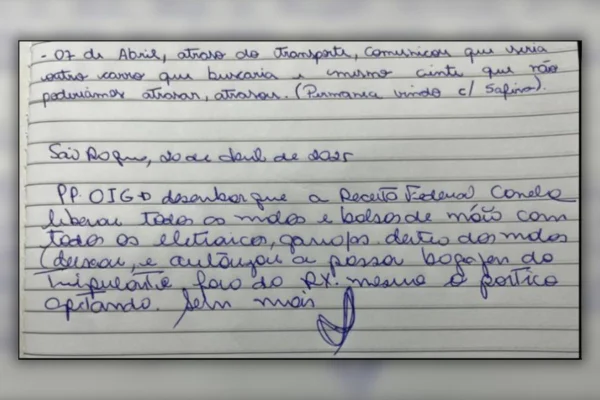 - 07 de Abril, atraso do transporte, comunicou que viria
outro carro que buscaria e mesmo ciente que não
poderíamos atrasar, atrasou. (Permanca vindo c/ Safira).
São Roque, 20 de abril de 2025
PP. OIG desenbar que a Receita Federal Conela
liberau todos os mdos e bolsos de mão com
todos os eletroicos, dentro dos mdos
(deixou, e autorizou a passar bagagen do
tripulante fora do RX. mesmo o portico
apitando. Sem mais